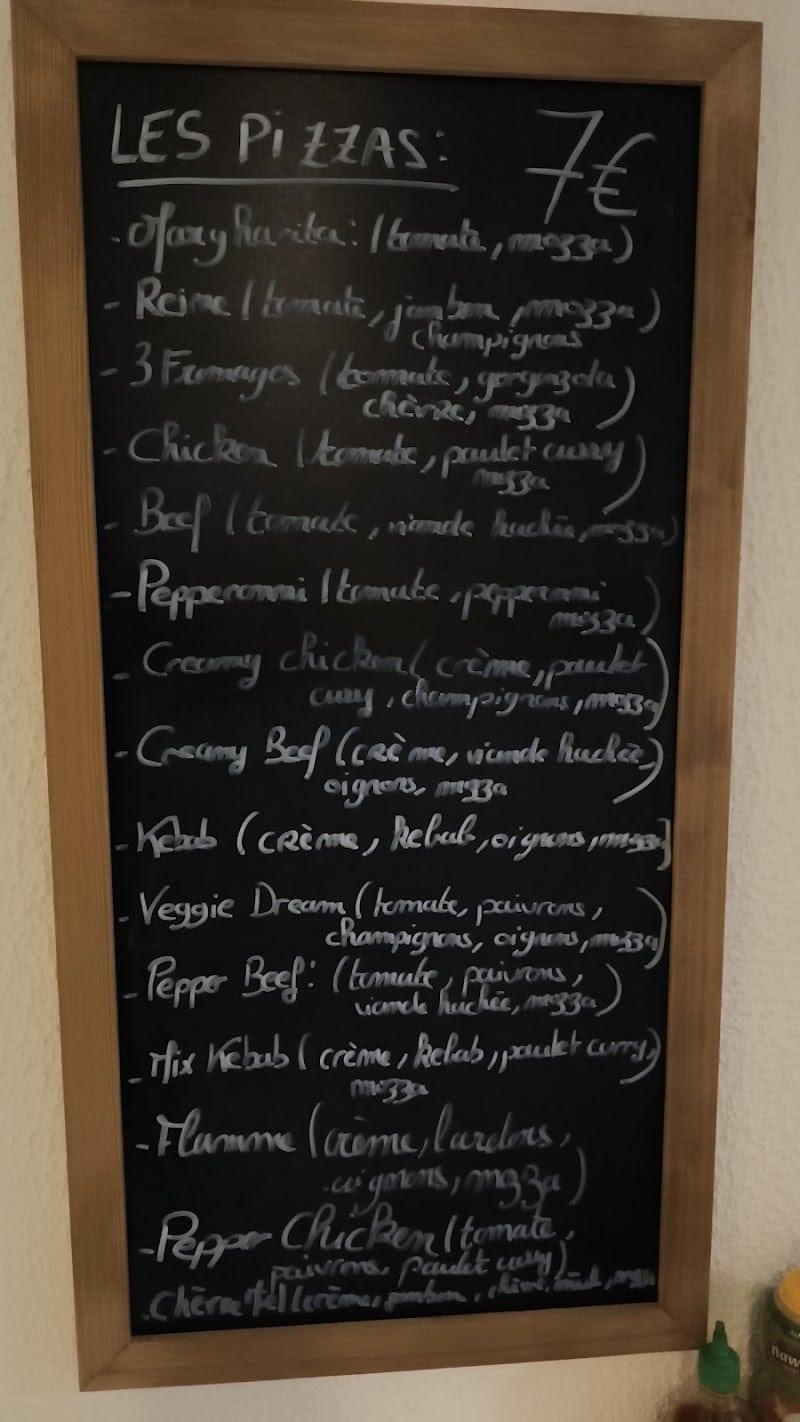 LES PiZZAS: 7€
- Margharita: (tomate, mozza)
- Reine (tomate, jambon, mozza)
champignons
- 3 Fromages (tomate, gorgonzola
chèvre, mozza)
- Chicken (tomate, poulet curry
mozza)
- Beef (tomate, viande hachée, mozza)
- Pepperonni (tomate, pepperonni
mozza)
- Creamy chicken (crème, poulet
curry, champignons, mozza)
- Creamy Beef (crème, viande hachée,
oignons, mozza)
- Kebab (crème, kebab, oignons, mozza)
- Veggie Dream (tomate, poivrons,
champignons, oignons, mozza)
- Pepper Beef: (tomate, poivrons,
viande hachée, mozza)
- Mix Kebab (crème, kebab, poulet curry,
mozza)
- Flamme (crème, lardons,
oignons, mozza)
- Pepper Chicken (tomate,
poivrons, poulet curry)
- Chèvre (crème, jambon, chèvre, miel, mozza